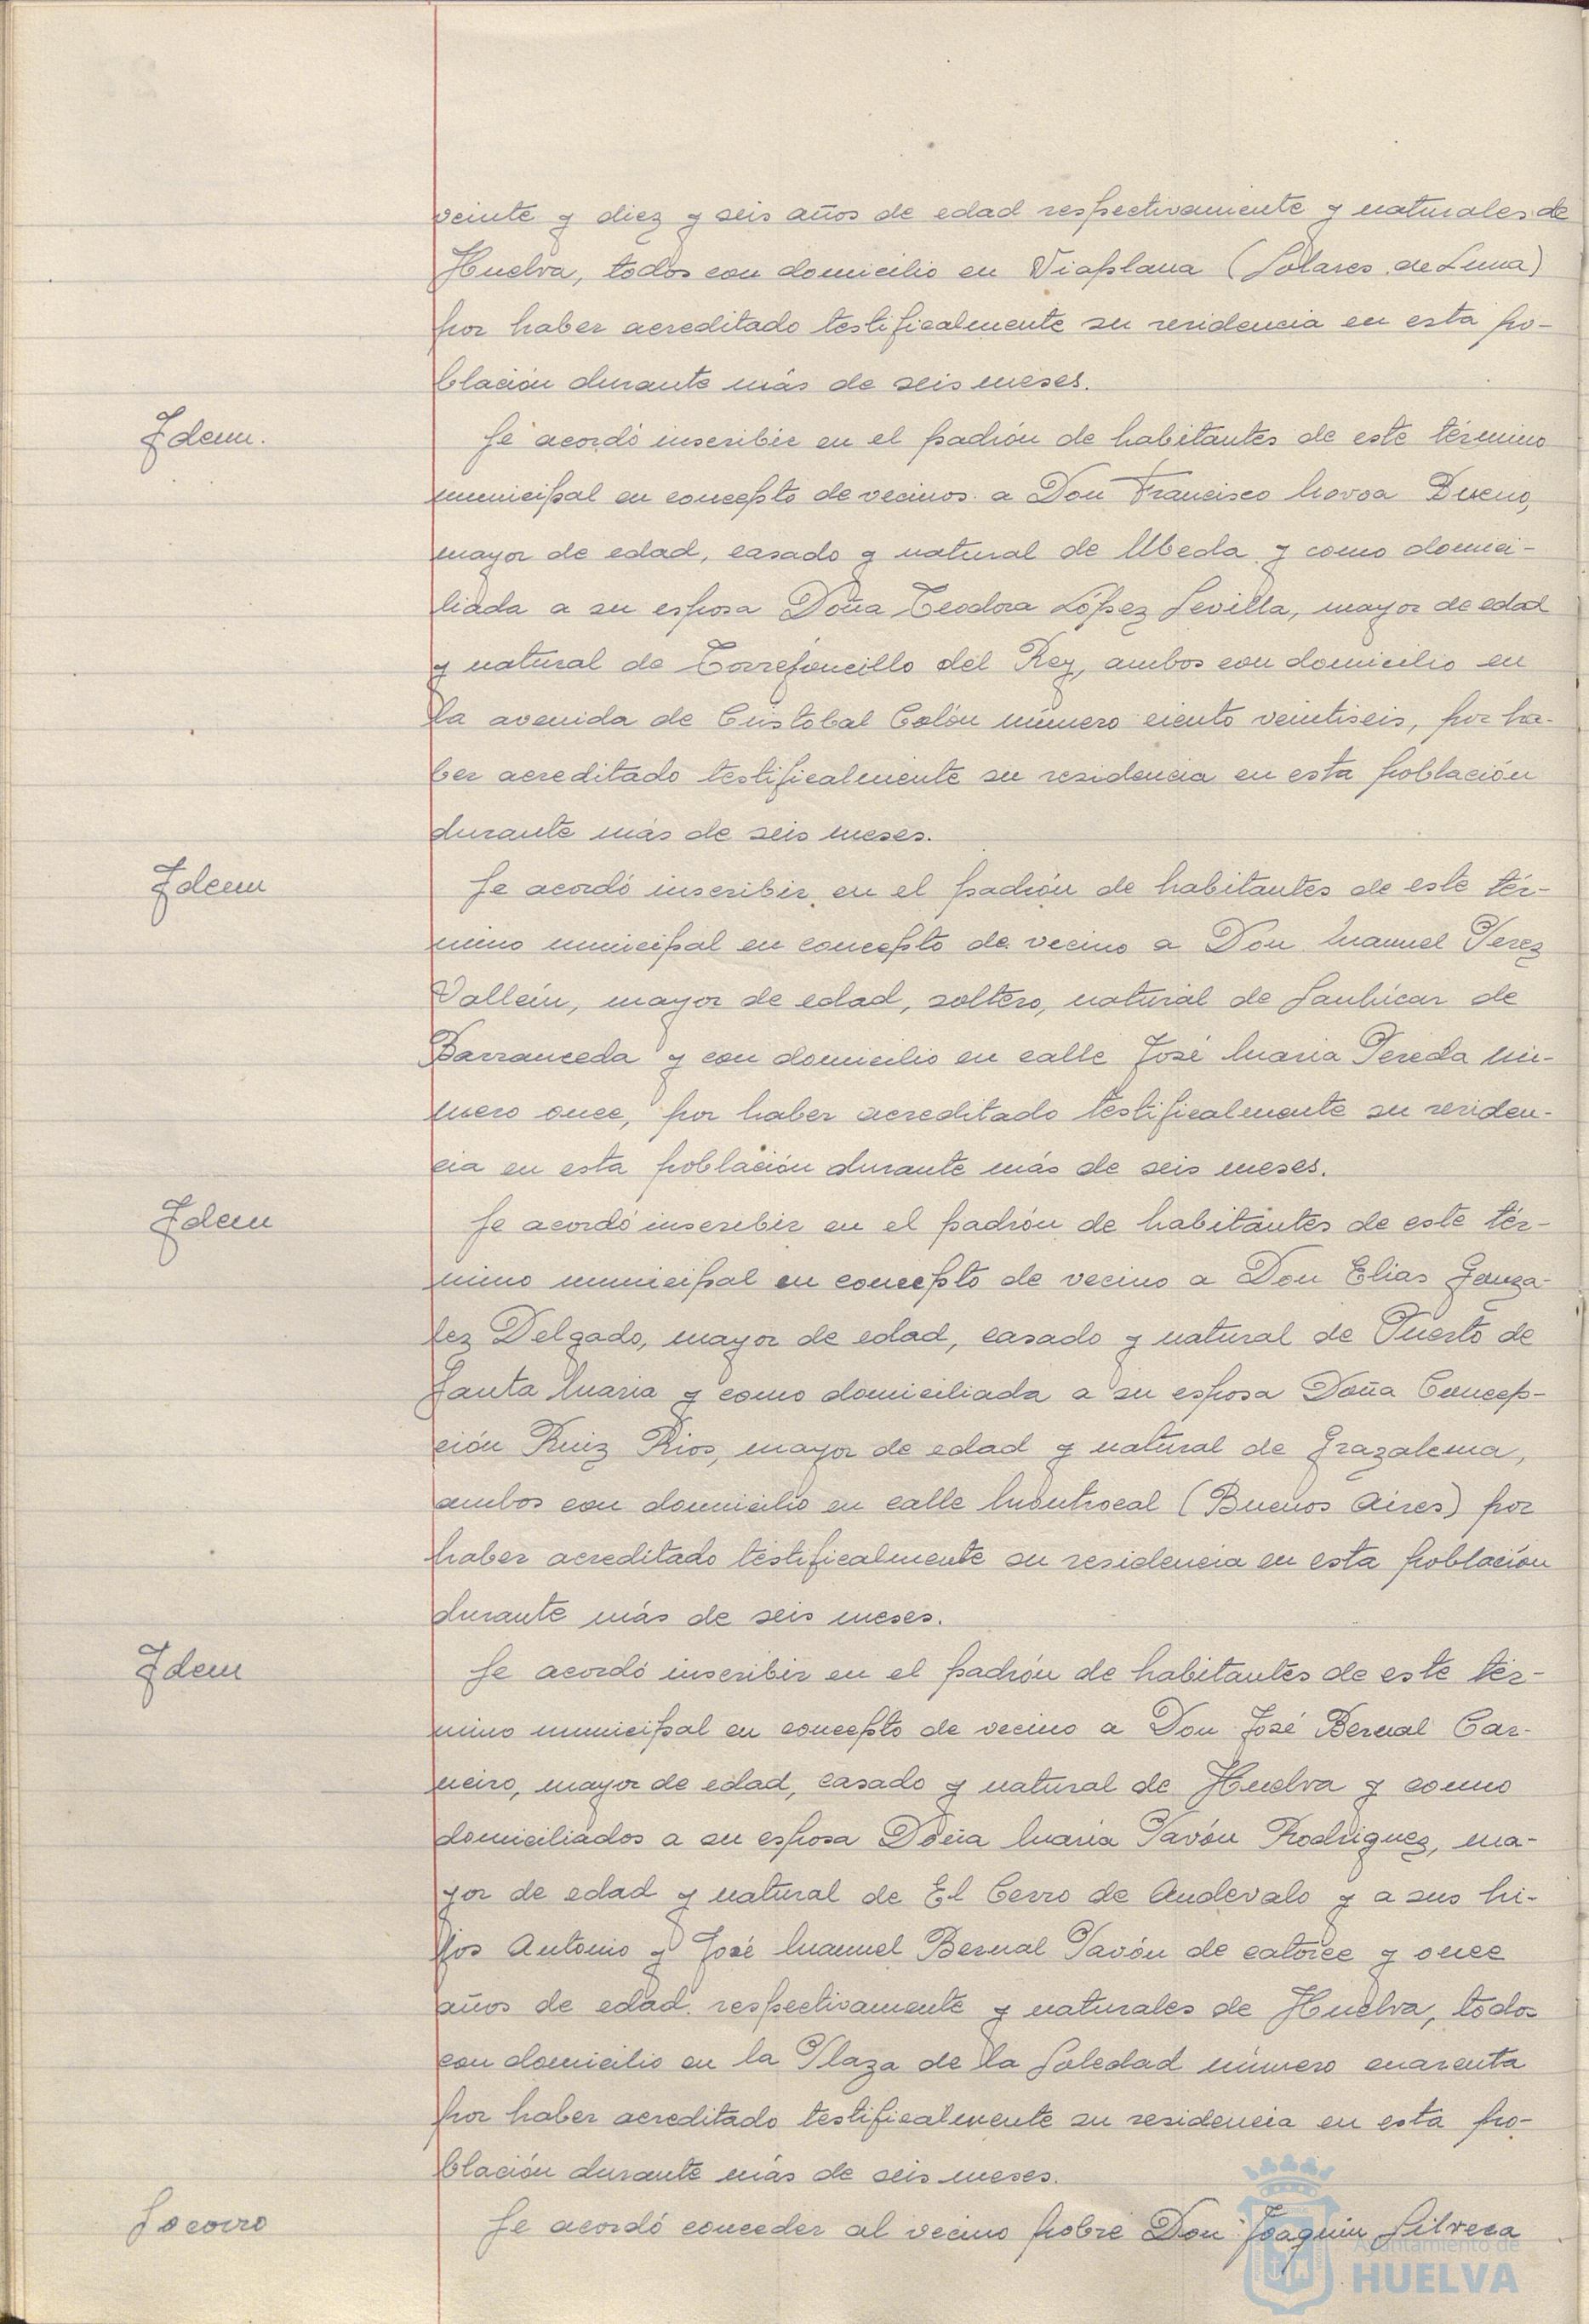 veinte y diez y seis años de edad respectivamente y naturales de
Huelva, todos con domicilio en Viaplana (Solares de Luna)
por haber acreditado testificalmente su residencia en esta po-
blación durante más de seis meses.
Idem.
Se acordó inscribir en el padrón de habitantes de este término
municipal en concepto de vecinos a Don Francisco Novoa Bueno,
mayor de edad, casado y natural de Ubeda y como domici-
liada a su esposa Doña Teodora López Sevilla, mayor de edad
y natural de Torrejoncillo del Rey, ambos con domicilio en
la avenida de Cristobal Colón número ciento veintiseis, por ha-
ber acreditado testificalmente su residencia en esta población
durante más de seis meses.
Idem
Se acordó inscribir en el padrón de habitantes de este tér-
mino municipal en concepto de vecino a Don Manuel Perez
mayor de edad, soltero, natural de Sanlúcar de
Barrameda y con domicilio en calle José Maria Pereda nú-
mero once, por haber acreditado testificalmente su residen-
cia en esta población durante más de seis meses.
Idem
Se acordó inscribir en el padrón de habitantes de este tér-
mino municipal en concepto de vecino a Don Elias Gonza-
lez Delgado, mayor de edad, casado y natural de Puerto de
Santa Maria y como domiciliada a su esposa Doña Concep-
ción Ruiz Rios, mayor de edad y natural de Grazalema,
ambos con domicilio en calle Montrocal (Buenos Aires) por
haber acreditado testificalmente su residencia en esta población
durante más de seis meses.
Idem
Se acordó inscribir en el padrón de habitantes de este tér-
mino municipal en concepto de vecino a Don José Bernal Car-
neiro, mayor de edad, casado y natural de Huelva y como
domiciliados a su esposa Doña María Pavón Rodriguez, ma-
yor de edad y natural de El Cerro de Andevalo y a sus hi-
jos Antonio y José Manuel Bernal Pavón de catorce y once
años de edad respectivamente y naturales de Huelva, todos
con domicilio en la Plaza de la Soledad número cuarenta
por haber acreditado testificalmente su residencia en esta po-
blación durante más de seis meses.
Socorro
Se acordó conceder al vecino pobre Don Joaquin Silvera
Ayuntamiento de
HUELVA